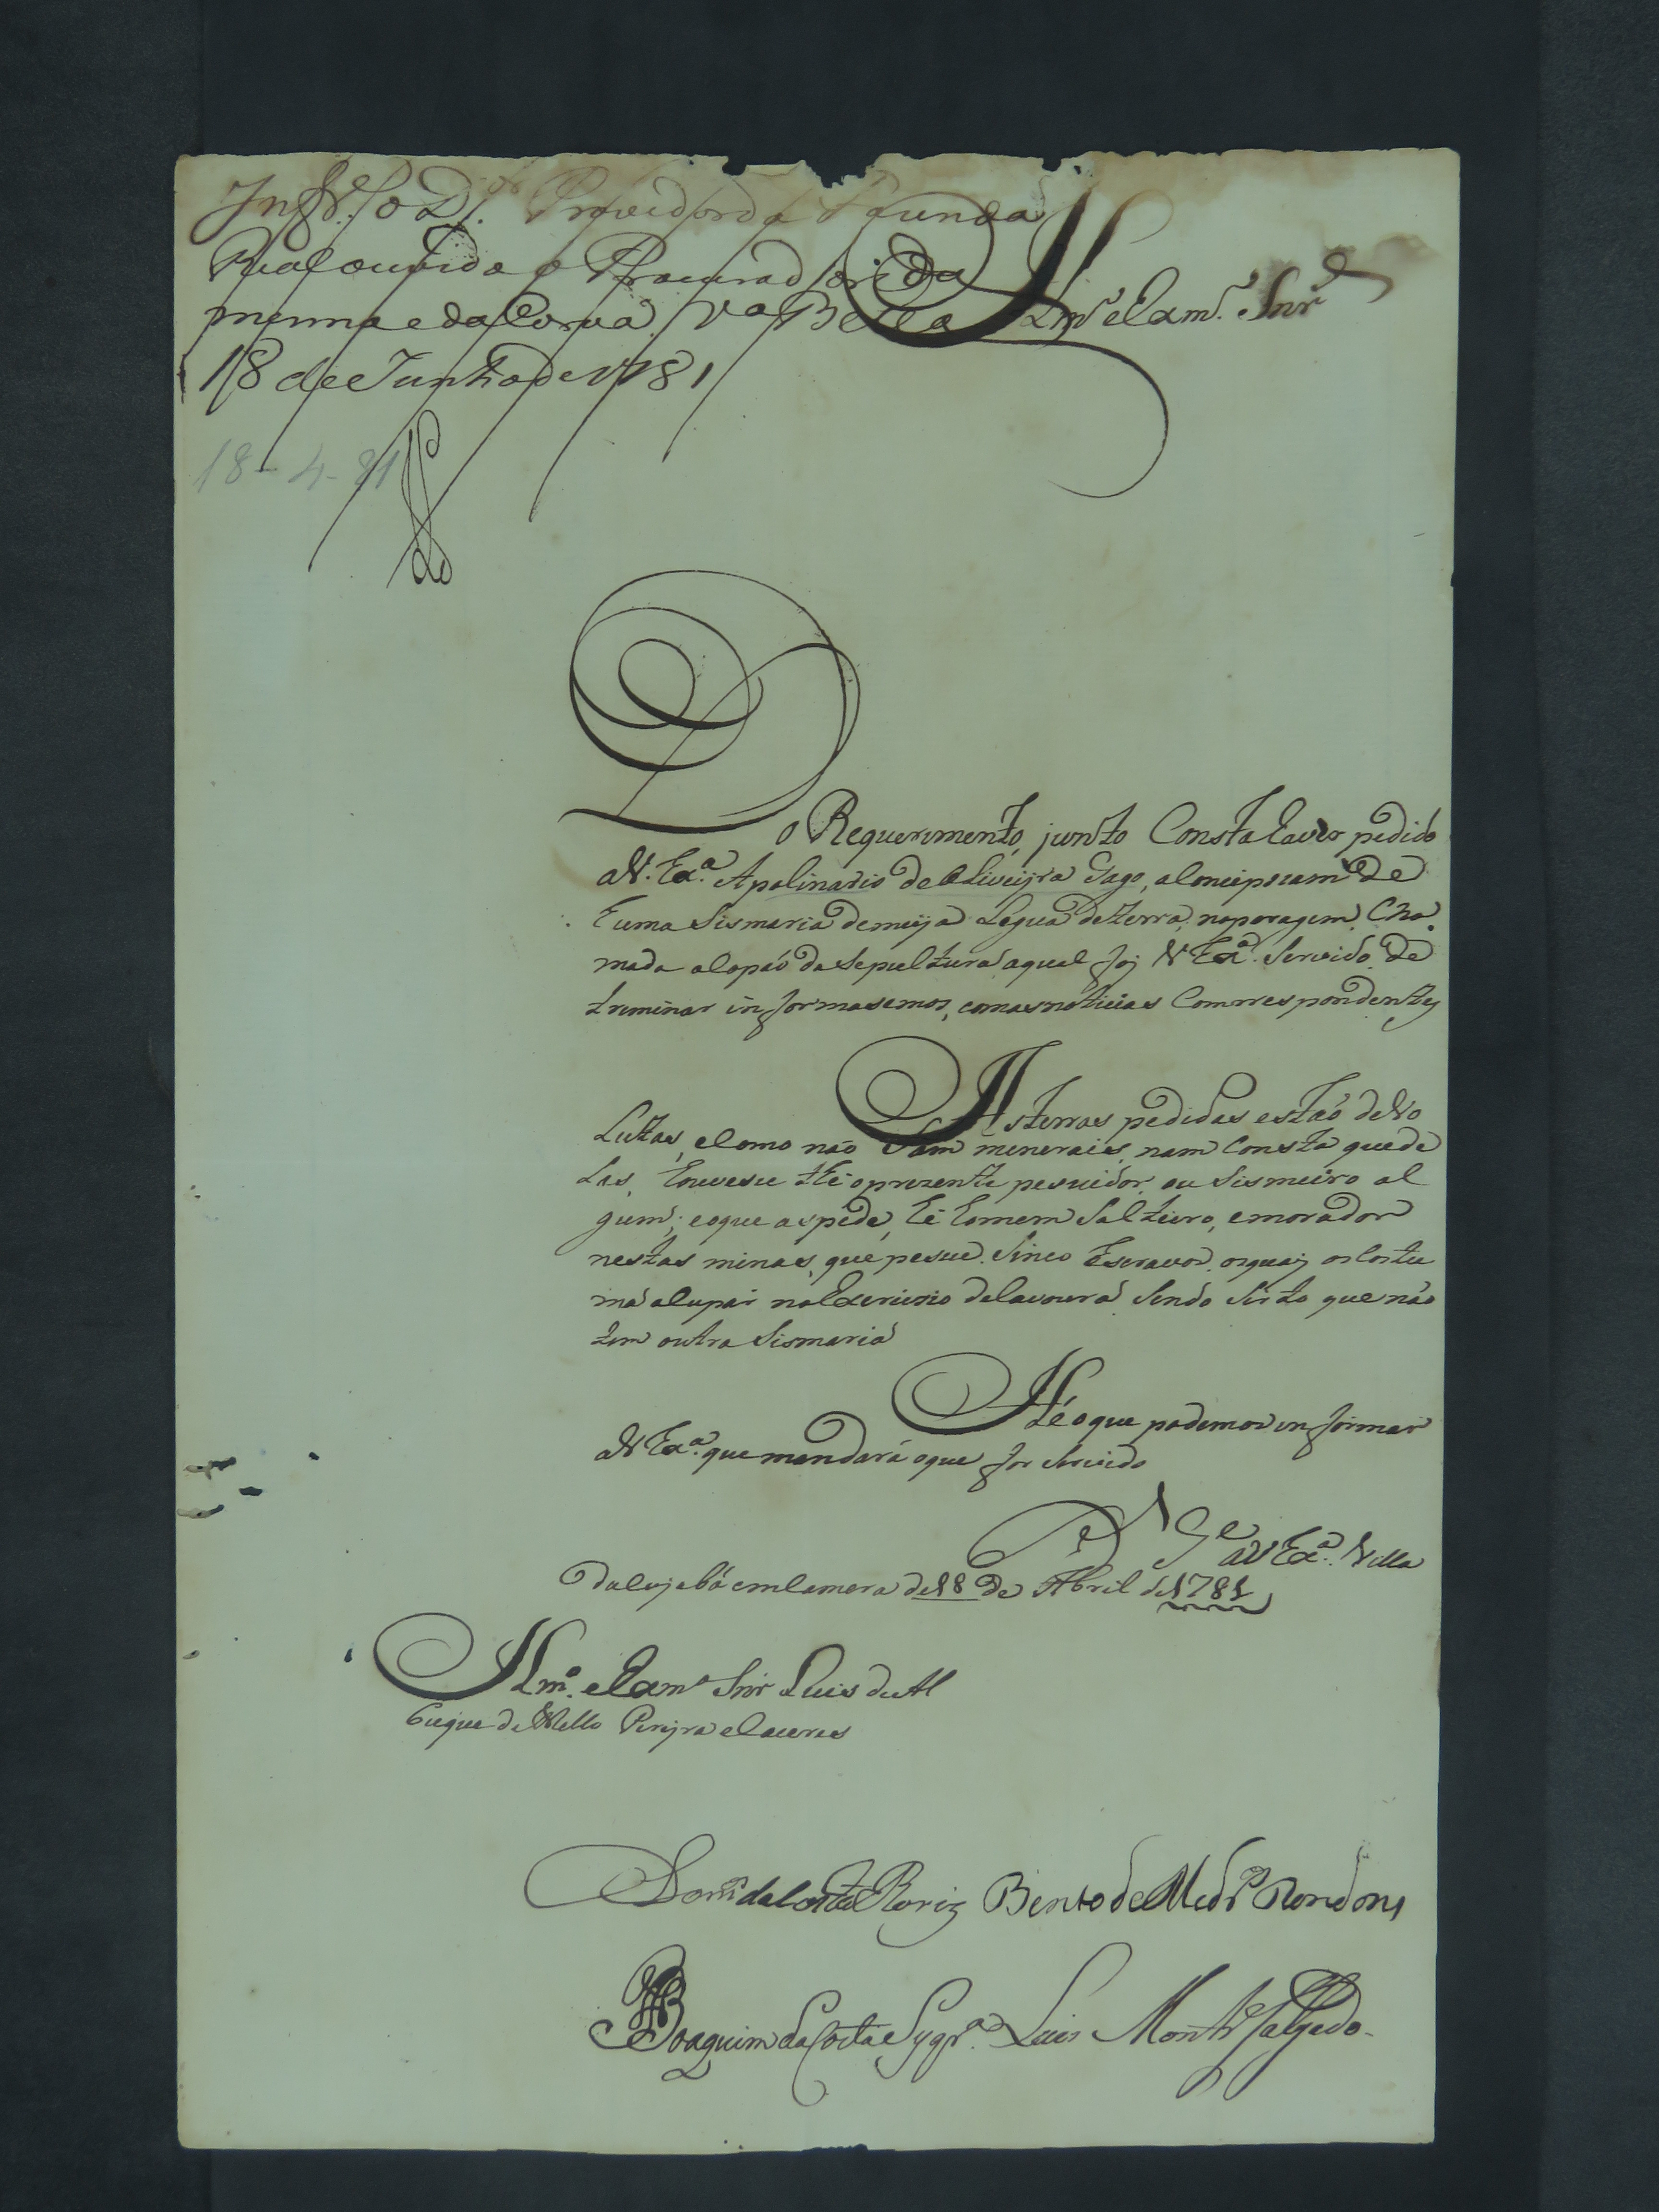 Inf.e o D.or Provedor da Fazenda
Real ouvido o Procurador da
mesma e da Coroa V.a Bella
18 de Junho de 1781
Illm.o e Exm.o Snr
18-4-81
Do Requerimento junto Consta haver pedido
a V. Ex.a Apolinario de Oliveijra Gago, a Comciporam de
huma Sismaria de meija Legua de terra, na paragem Cha
mada o Capaó da Sepulturá aqual foj V Ex.a Servido de
triminar informasemos, com as noticias Comrrespondentes
As terras pedidas estaó devo
Lutas, e Como não Sam menerais, nam Consta que de
Las, houvese thé o prezente pesuidor ou Sismeiro al
gum; e o que as pede, hé homem Salteiro, e morador
nestas minas, que pesue Sinco Escravos, os quais os Costu
má ocupár no Exericisio da Lavourá Sendo Sérto que não
tem outra Sismariá
Hé o que podemos informar
a V Ex.a que mandará o que for Servido
D.s G.e a V Ex.a Villa
do Cujabá em Camera de 18 de Abril de 1781
Illm.o e Exm.o Snr Luis de Al
buque de Mello Perejra e Caceres
Dom.os da Costa Roriz Bento de Med.ros Rondon
Joaquim da Costa Syqr.a Luis Montr.o Salgado